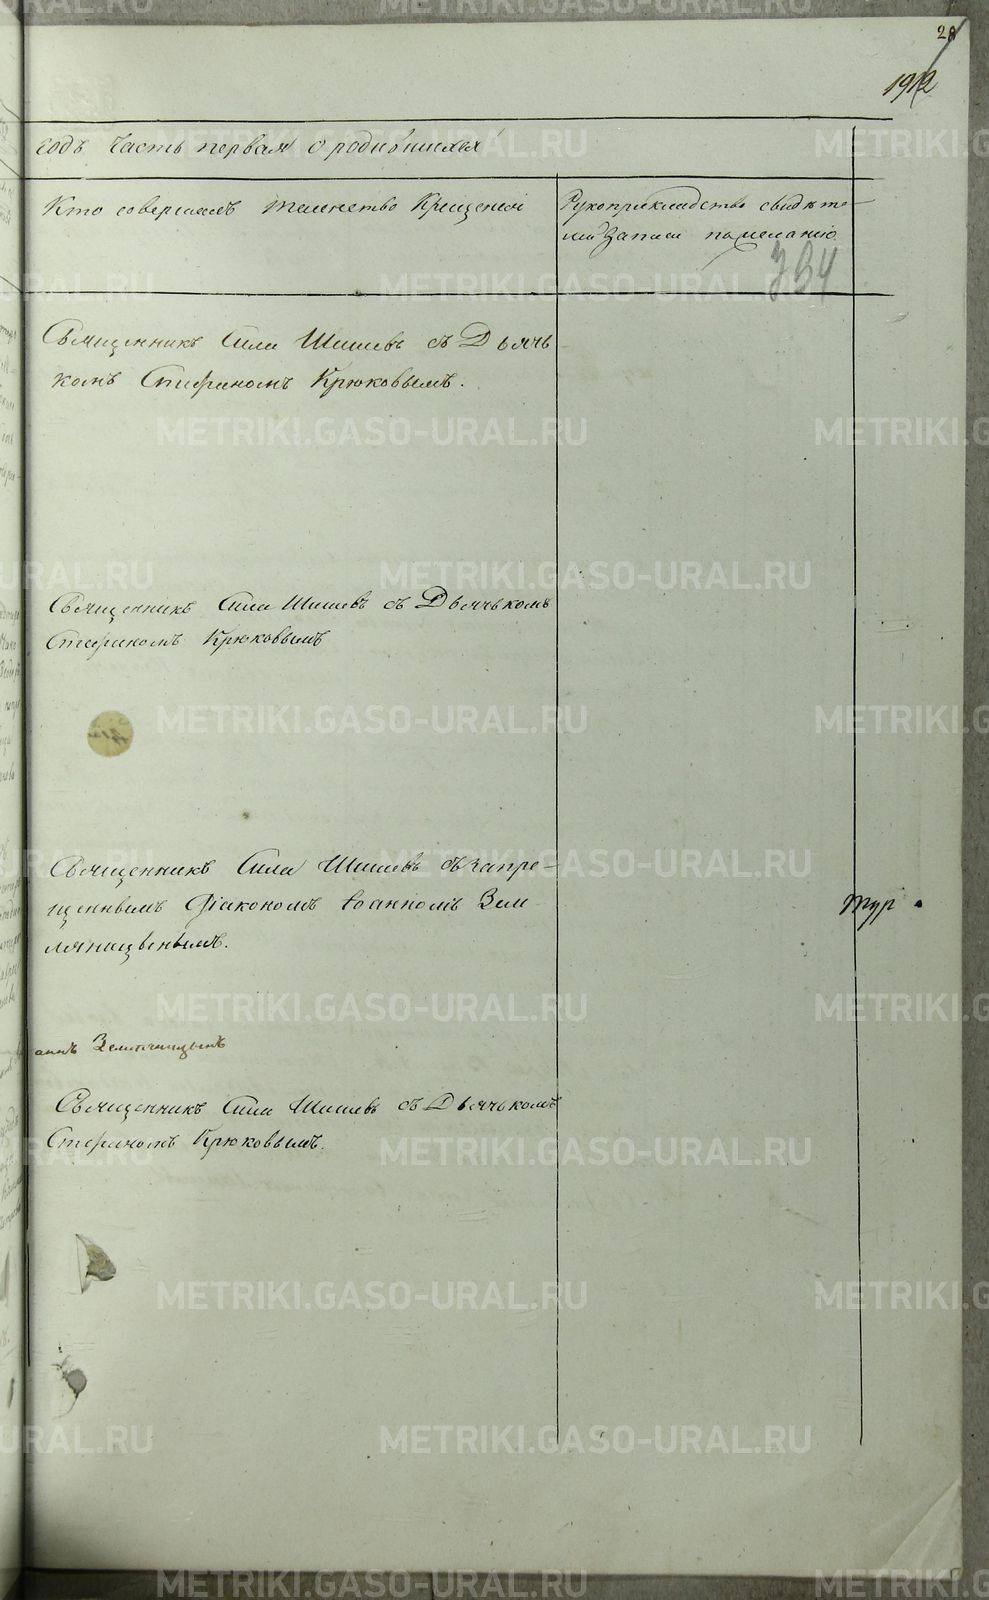 28
годъ Часть первая о родившихся
Кто совершалъ таинство Крещенія
Рукоприкладство свидѣте-
лей записи по желанію
334
Священникъ Сила Шишевъ съ Дьячь
комъ Стефаномъ Крюковымъ.
Священникъ Сила Шишевъ съ Дьячькомъ
Стефаномъ Крюковымъ
Священникъ Сила Шишевъ съ запре-
щеннымъ Діакономъ Іоанномъ Зем
ляницынымъ.
Священникъ Сила Шишевъ съ Дьячькомъ
Стефаномъ Крюковымъ.
METRIKI.GASO-URAL.RU